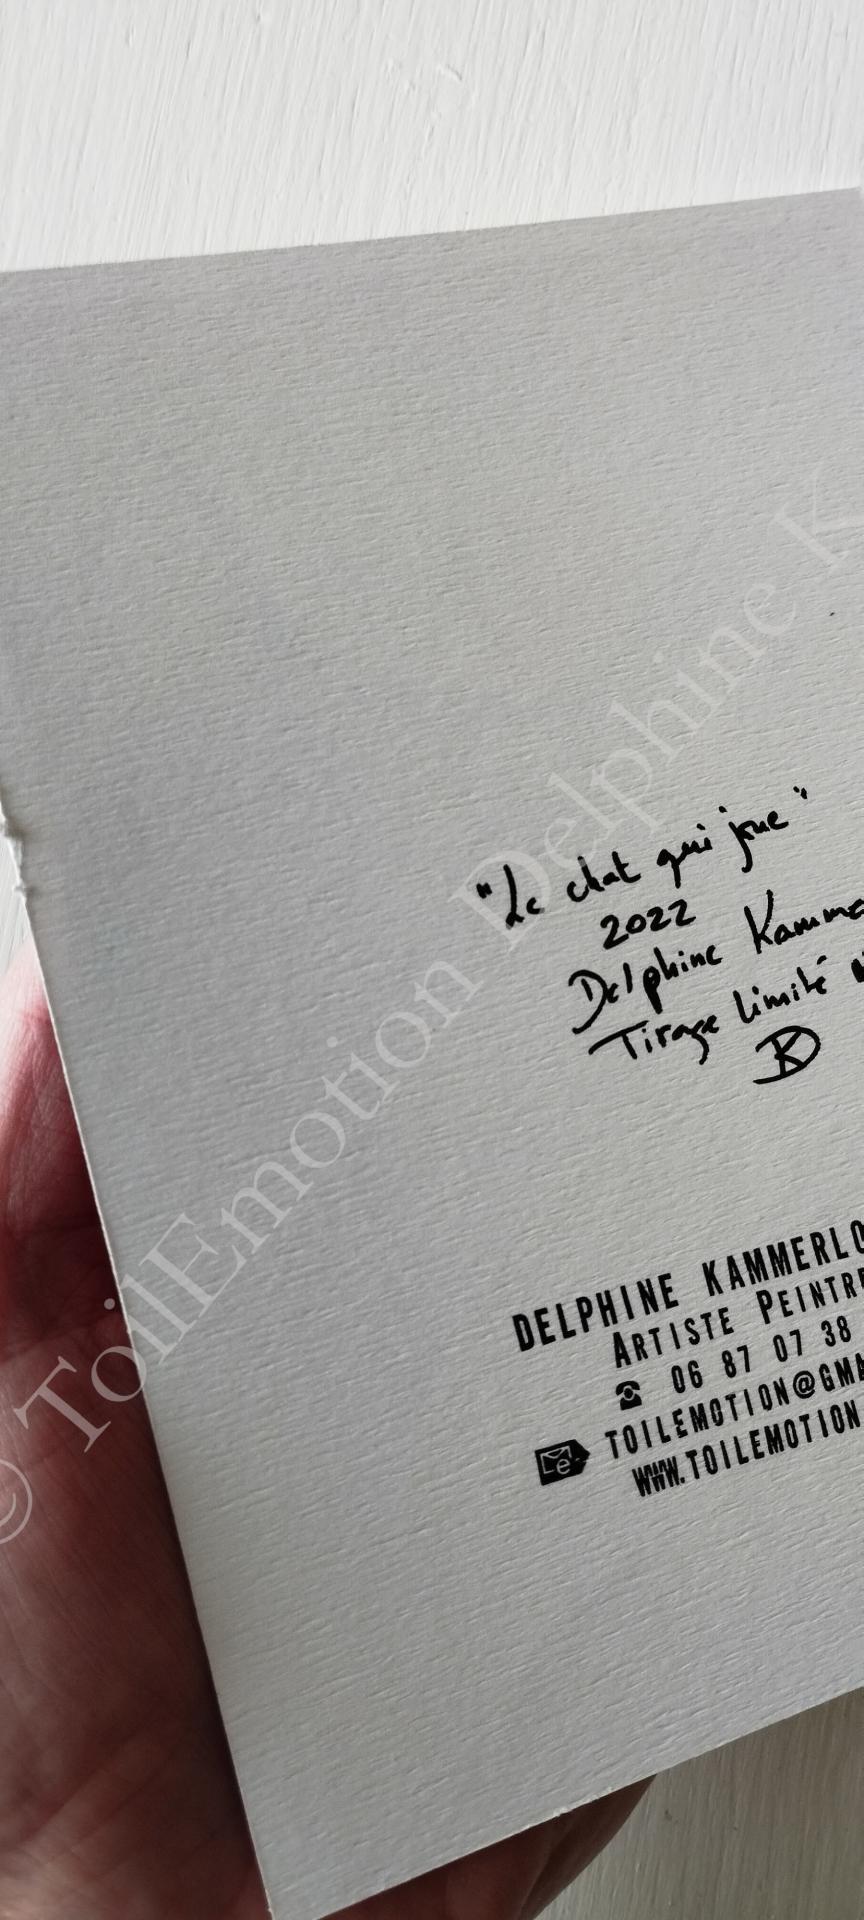 "Le chat qui joue"
2022
Delphine Kamme
Tirage limité
DK
DELPHINE KAMMERLO
ARTISTE PEINTRE
06 87 07 38
TOILEMOTION@GMA
WWW.TOILEMOTION
© ToilEmotion Delphine K